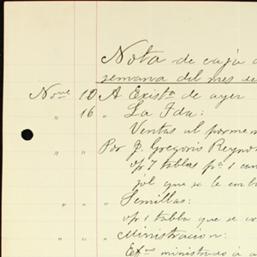 Nota de caja d
semana del mes de
Nove 10 A Exista de ayer
" 16 " La Fda:
Ventas al pormeno
Por J. Gregorio Reyno
o/p 7 tablas pa 1 can
gol que se le emba
" " " Semillas:
o/p 1 tabla que se co
" " " Ministracion:
Exmo ministrado á a